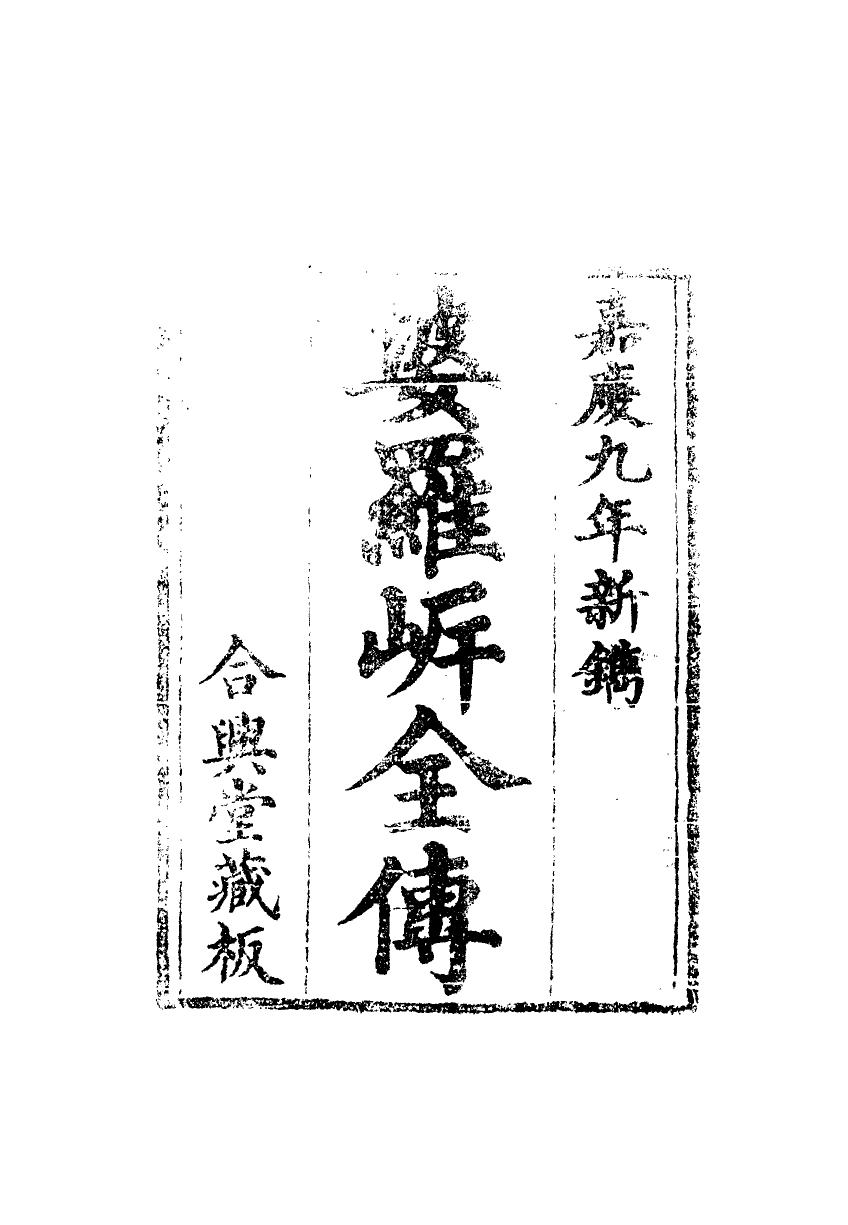 嘉慶九年新鐫
婆羅岸全傳
合興堂藏板